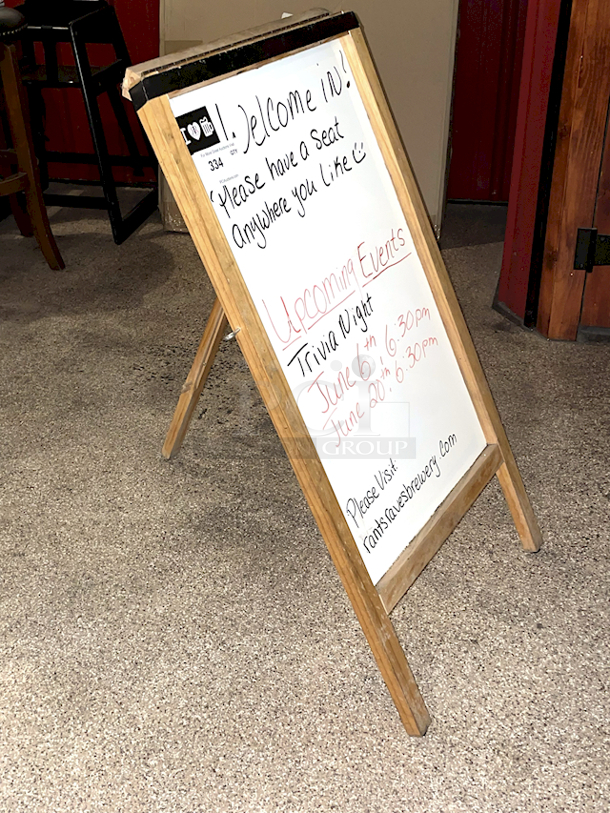 Welcome iN!
Please have a seat
anywhere you like
334
Upcoming Events
Trivia Night
June 6th 6:30pm
June 20th 6:30pm
GROUP
Please Visit
rantsravesbrewery.com